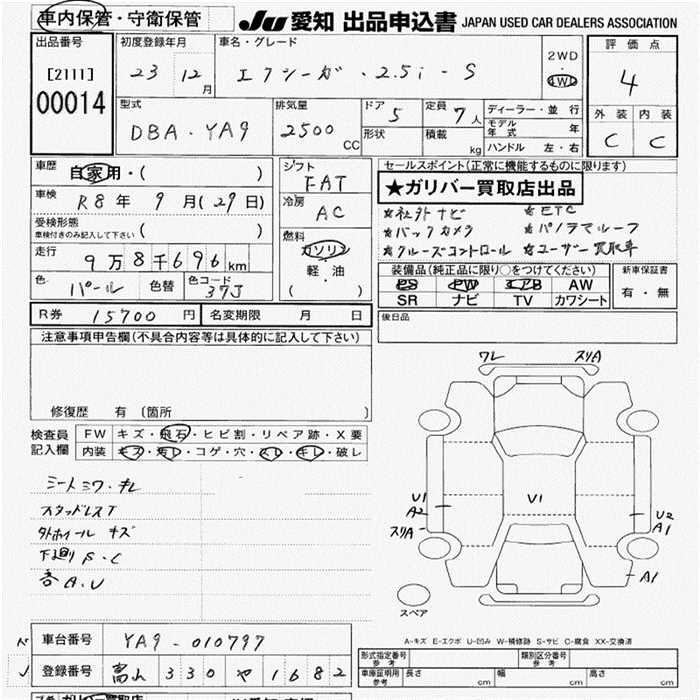 車内保管・守衛保管
JU 愛知 出品申込書 JAPAN USED CAR DEALERS ASSOCIATION
出品番号
[2111]
00014
初度登録年月
23 12月
車名・グレード
エクシーガ・2.5i-S
2WD
・
4WD
評価点
4
外装 内装
C C
型式
DBA-YA9
排気量
2500CC
ドア 5
形状
定員 7人
積載 kg
ディーラー・並行
モデル年式 年
ハンドル 左・右
車歴 自家用・( )
車検 R8年 9月(29日)
受検形態
車検付きのみ記入して下さい ( )
走行 9万8千696km
色 パール 色替 色コード 37J
シフト
FAT
冷房
AC
燃料
ガソリン
軽・油
( )
セールスポイント(正常に機能するものに限ります)
★ガリバー買取店出品
★社外ナビ ★ETC
★バックカメラ ★パノラマルーフ
★クルーズコントロール ★ユーザー買取車
装備品(純正品に限り○をつけてください)
PS PW エアB AW
SR ナビ TV カワシート
新車保証書
有・無
後日品
R券 15700円 名変期限 月 日
注意事項申告欄(不具合内容等は具体的に記入して下さい)
修復歴 有 〔箇所 〕
検査員記入欄
FW キズ・飛石・ヒビ割・リペア跡・X要
内装 キズ・汚レ・コゲ・穴・スレ・キレ・破レ
シートシワ・キレ
スタッドレスT
外ホイール キズ
下廻りS・C
各A.U
ワレ スリA
U1
A2
スリA
U1
U2
A1
A1
スペア
A-キズ E-エクボ U-凹み W-補修跡 S-サビ C-腐食 XX-交換済
車台番号 YA9-010797
登録番号 富山 330 や 1682
形式指定番号
参考
類別区分番号
参考
車庫証明用
参考
長さ cm 幅 cm 高さ cm
ガリバー買取店